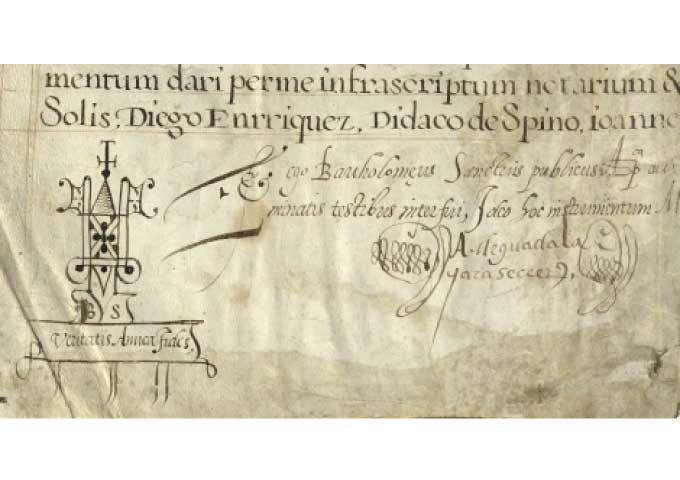 mentum dari per me infrascriptum notarium &
Solis, Diego Enrriquez, Didaco de Spino, ioanne
Ego Bartholomeus Sancteus publicus Ap. au
minatis testibus interfui, Ideo hoc instrumentum
B S
Veritatis Amica fides